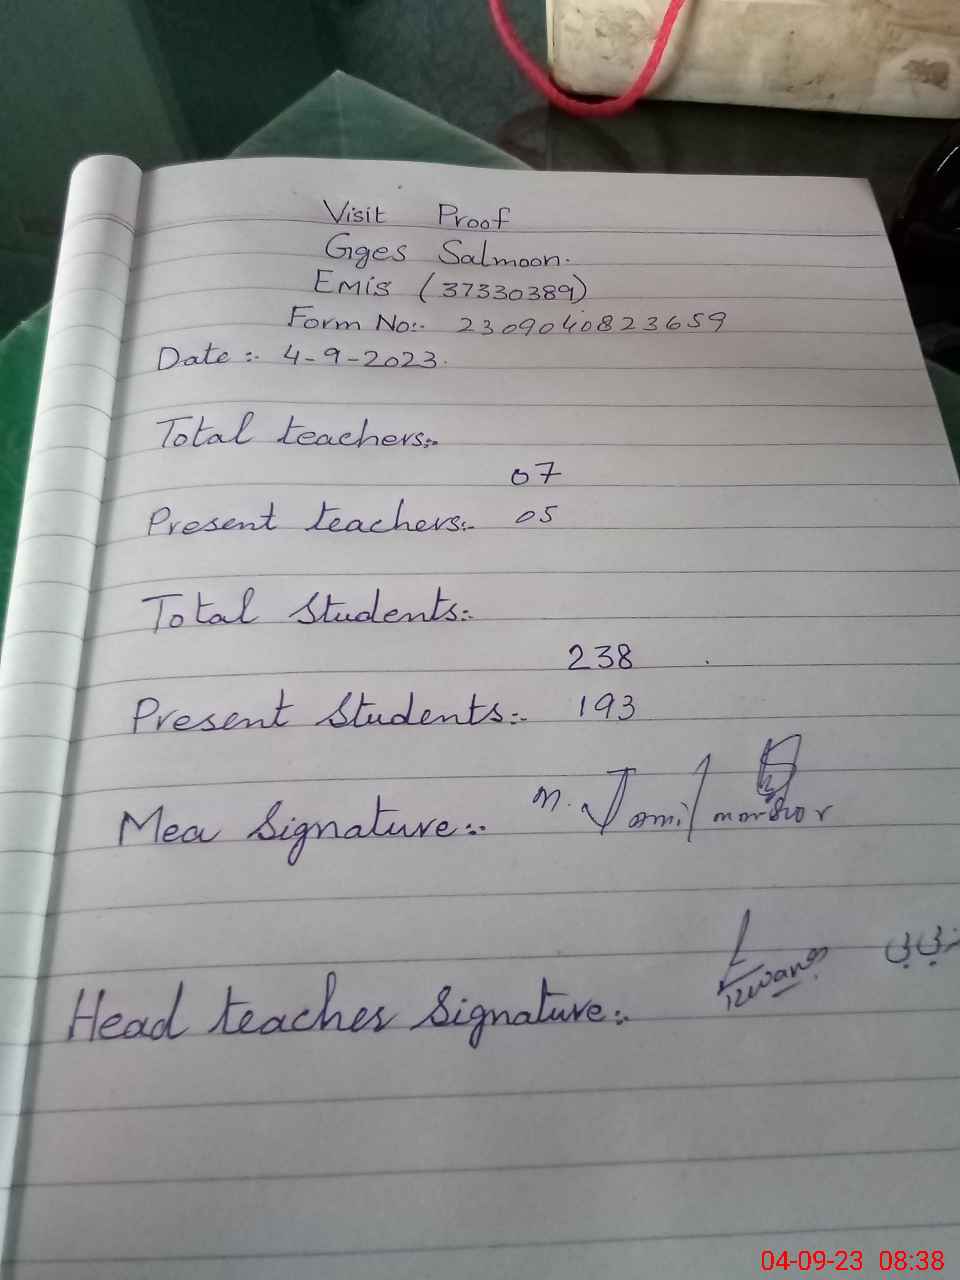 Visit Proof
Gges Salmoon.
Emis (37330389)
Form No:- 2309040823659
Date:- 4-9-2023.
Total teachers:-
07
Present teachers:- 05
Total Students:-
238
Present Students:- 193
Mea Signature:- M. Jamil
Head teacher Signature:-
04-09-23 08:38